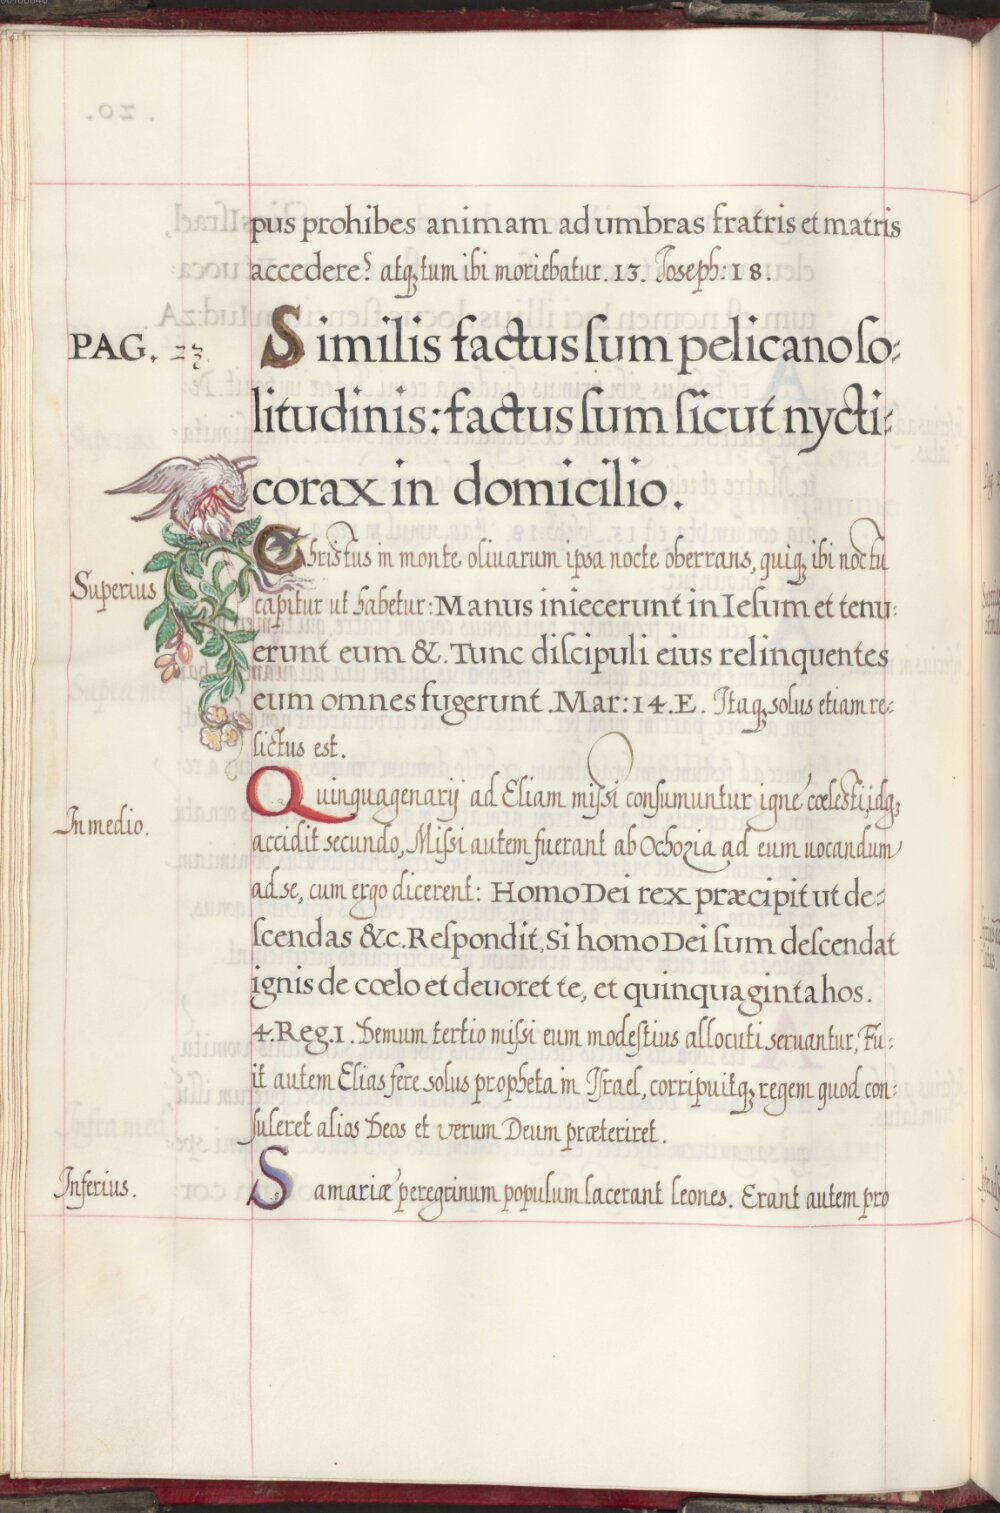 pus prohibes animam ad umbras fratris et matris
accedere? atq; tum ibi moriebatur. 13. Joseph: 18.
PAG. 23.
Similis factus sum pelicano so-
litudinis: factus sum sicut nycti-
corax in domicilio.
Superius
Christus in monte oliuarum ipsa nocte oberrans, quiq; ibi noctu
capitur ut habetur: Manus iniecerunt in Iesum et tenu-
erunt eum &. Tunc discipuli eius relinquentes
eum omnes fugerunt. Mar: 14. E. Itaq; solus etiam re-
lictus est.
In medio.
Quinquagenarij ad Eliam missi consumuntur igne cœlesti, idq;
accidit secundo, Missi autem fuerant ab Ochozia ad eum uocandum
ad se, cum ergo dicerent: Homo Dei rex præcipit ut de-
scendas &c. Respondit, Si homo Dei sum descendat
ignis de cœlo et deuoret te, et quinquaginta hos.
4. Reg. 1. Demum tertio missi eum modestius allocuti seruantur, Fu-
it autem Elias fere solus propheta in Israel, corripuitq; regem quod con-
suleret alios Deos et verum Deum præteriret.
Inferius.
Samariæ peregrinum populum lacerant leones. Erant autem pro